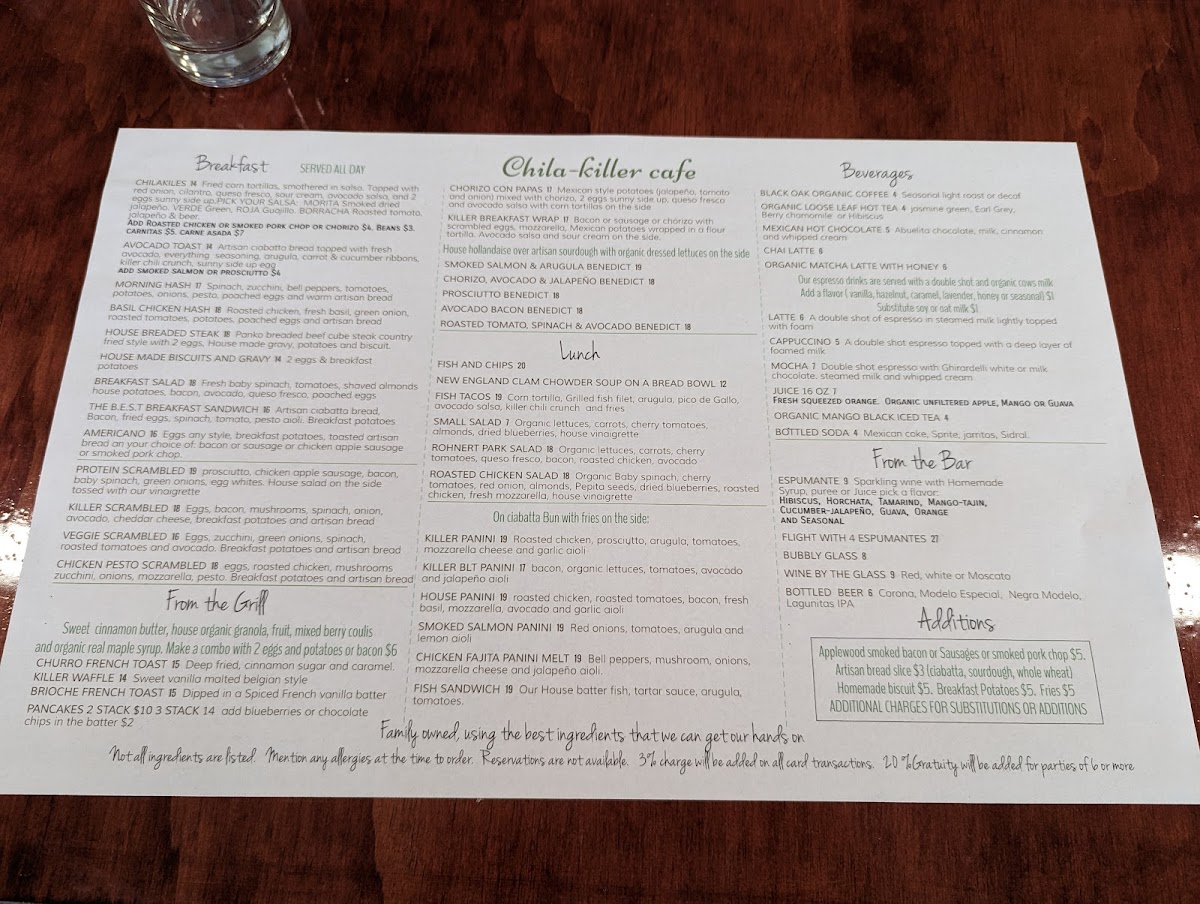 Breakfast SERVED ALL DAY
CHILAKILES 14 Fried corn tortillas, smothered in salsa. Topped with
red onion, cilantro, queso fresco, sour cream, avocado salsa, and 2
eggs sunny side up.PICK YOUR SALSA: MORITA Smoked dried
jalapeño. VERDE Green, ROJA Guajillo. BORRACHA Roasted tomato,
jalapeño & beer
ADD ROASTED CHICKEN OR SMOKED PORK CHOP OR CHORIZO $4. BEANS $3.
CARNITAS $5. CARNE ASADA $7
AVOCADO TOAST 14 Artisan ciabatta bread topped with fresh
avocado, everything seasoning, arugula, carrot & cucumber ribbons,
killer chili crunch, sunny side up egg
ADD SMOKED SALMON OR PROSCIUTTO $4
MORNING HASH 17 Spinach, zucchini, bell peppers, tomatoes,
potatoes, onions, pesto, poached eggs and warm artisan bread
BASIL CHICKEN HASH 18 Roasted chicken, fresh basil, green onion,
roasted tomatoes, potatoes, poached eggs and artisan bread
HOUSE BREADED STEAK 18 Panko breaded beef cube steak country
fried style with 2 eggs, House made gravy, potatoes and biscuit.
HOUSE MADE BISCUITS AND GRAVY 14 2 eggs & breakfast
potatoes
BREAKFAST SALAD 18 Fresh baby spinach, tomatoes, shaved almonds
house potatoes, bacon, avocado, queso fresco, poached eggs
THE B.E.S.T BREAKFAST SANDWICH 16 Artisan ciabatta bread,
Bacon, fried eggs, spinach, tomato, pesto aioli. Breakfast potatoes
AMERICANO 16 Eggs any style, breakfast potatoes, toasted artisan
bread an your choice of: bacon or sausage or chicken apple sausage
or smoked pork chop.
PROTEIN SCRAMBLED 19 prosciutto, chicken apple sausage, bacon,
baby spinach, green onions, egg whites. House salad on the side
tossed with our vinaigrette
KILLER SCRAMBLED 18 Eggs, bacon, mushrooms, spinach, onion,
avocado, cheddar cheese, breakfast potatoes and artisan bread
VEGGIE SCRAMBLED 16 Eggs, zucchini, green onions, spinach,
roasted tomatoes and avocado. Breakfast potatoes and artisan bread
CHICKEN PESTO SCRAMBLED 18 eggs, roasted chicken, mushrooms
zucchini, onions, mozzarella, pesto. Breakfast potatoes and artisan bread
From the Grill
Sweet cinnamon butter, house organic granola, fruit, mixed berry coulis
and organic real maple syrup. Make a combo with 2 eggs and potatoes or bacon $6
CHURRO FRENCH TOAST 15 Deep fried, cinnamon sugar and caramel.
KILLER WAFFLE 14 Sweet vanilla malted belgian style
BRIOCHE FRENCH TOAST 15 Dipped in a Spiced French vanilla batter
PANCAKES 2 STACK $10 3 STACK 14 add blueberries or chocolate
chips in the batter $2
Chila-killer cafe
CHORIZO CON PAPAS 17 Mexican style potatoes (jalapeño, tomato
and onion) mixed with chorizo, 2 eggs sunny side up, queso fresco
and avocado salsa with corn tortillas on the side
KILLER BREAKFAST WRAP 17 Bacon or sausage or chorizo with
scrambled eggs, mozzarella, Mexican potatoes wrapped in a flour
tortilla. Avocado salsa and sour cream on the side.
House hollandaise over artisan sourdough with organic dressed lettuces on the side
SMOKED SALMON & ARUGULA BENEDICT 19
CHORIZO, AVOCADO & JALAPEÑO BENEDICT 18
PROSCIUTTO BENEDICT 18
AVOCADO BACON BENEDICT 18
ROASTED TOMATO, SPINACH & AVOCADO BENEDICT 18
Lunch
FISH AND CHIPS 20
NEW ENGLAND CLAM CHOWDER SOUP ON A BREAD BOWL 12
FISH TACOS 19 Corn tortilla, Grilled fish filet, arugula, pico de Gallo,
avocado salsa, killer chili crunch and fries
SMALL SALAD 7 Organic lettuces, carrots, cherry tomatoes,
almonds, dried blueberries, house vinaigrette
ROHNERT PARK SALAD 18 Organic lettuces, carrots, cherry
tomatoes, queso fresco, bacon, roasted chicken, avocado
ROASTED CHICKEN SALAD 18 Organic Baby spinach, cherry
tomatoes, red onion, almonds, Pepita seeds, dried blueberries, roasted
chicken, fresh mozzarella, house vinaigrette
On ciabatta Bun with fries on the side:
KILLER PANINI 19 Roasted chicken, prosciutto, arugula, tomatoes,
mozzarella cheese and garlic aioli
KILLER BLT PANINI 17 bacon, organic lettuces, tomatoes, avocado
and jalapeño aioli
HOUSE PANINI 19 roasted chicken, roasted tomatoes, bacon, fresh
basil, mozzarella, avocado and garlic aioli
SMOKED SALMON PANINI 19 Red onions, tomatoes, arugula and
lemon aioli
CHICKEN FAJITA PANINI MELT 19 Bell peppers, mushroom, onions,
mozzarella cheese and jalapeño aioli.
FISH SANDWICH 19 Our House batter fish, tartar sauce, arugula,
tomatoes.
Beverages
BLACK OAK ORGANIC COFFEE 4 Seasonal light roast or decaf
ORGANIC LOOSE LEAF HOT TEA 4 jasmine green, Earl Grey,
Berry chamomile or Hibiscus
MEXICAN HOT CHOCOLATE 5 Abuelita chocolate, milk, cinnamon
and whipped cream
CHAI LATTE 6
ORGANIC MATCHA LATTE WITH HONEY 6
Our espresso drinks are served with a double shot and organic cows milk
Add a flavor ( vanilla, hazelnut, caramel, lavender, honey or seasonal) $1
Substitute soy or oat milk $1
LATTE 6 A double shot of espresso in steamed milk lightly topped
with foam
CAPPUCCINO 5 A double shot espresso topped with a deep layer of
foamed milk
MOCHA 7 Double shot espresso with Ghirardelli white or milk
chocolate. steamed milk and whipped cream
JUICE 16 OZ 7
FRESH SQUEEZED ORANGE. ORGANIC UNFILTERED APPLE, MANGO OR GUAVA
ORGANIC MANGO BLACK ICED TEA 4
BOTTLED SODA 4 Mexican coke, Sprite, jarritos, Sidral.
From the Bar
ESPUMANTE 9 Sparkling wine with Homemade
Syrup, puree or Juice pick a flavor:
HIBISCUS, HORCHATA, TAMARIND, MANGO-TAJIN,
CUCUMBER-JALAPEÑO, GUAVA, ORANGE
AND SEASONAL
FLIGHT WITH 4 ESPUMANTES 27
BUBBLY GLASS 8
WINE BY THE GLASS 9 Red, white or Moscato
BOTTLED BEER 6 Corona, Modelo Especial, Negra Modelo,
Lagunitas IPA
Additions
Applewood smoked bacon or Sausages or smoked pork chop $5.
Artisan bread slice $3 (ciabatta, sourdough, whole wheat)
Homemade biscuit $5. Breakfast Potatoes $5. Fries $5
ADDITIONAL CHARGES FOR SUBSTITUTIONS OR ADDITIONS
Family owned, using the best ingredients that we can get our hands on
Not all ingredients are listed. Mention any allergies at the time to order. Reservations are not available. 3% charge will be added on all card transactions. 20 %Gratuity will be added for parties of 6 or more